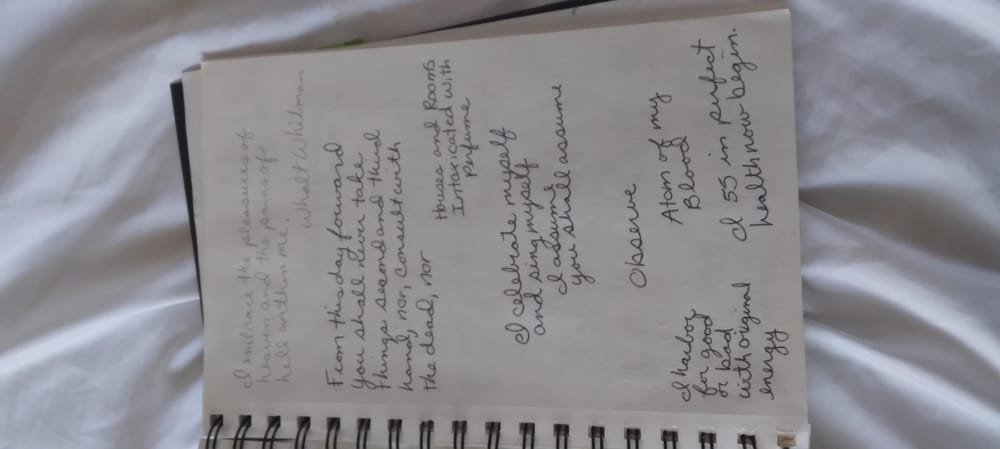 I embrace the pleasures of
heaven and the pains of
hell within me,
Whalt Whitman
From this day forward
you shall never take
things second and third
hand, nor, consult with
the dead, nor
Houses and Rooms
Intoxicated with
Perfume
I celebrate myself
and sing myself
I assume
you shall assume
Observe
Atom of my
Blood
I harbor
for good
or bad
with original
energy
I 55 in perfect
health now begin.